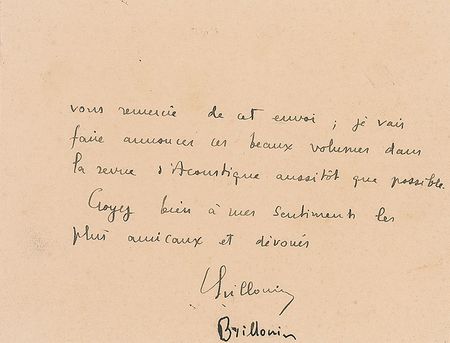 vous remercie de cet envoi ; je vais
faire annoncer ces beaux volumes dans
la revue d'Acoustique aussitôt que possible.
Croyez bien à mes sentiments les
plus amicaux et dévoués
Brillouin
Brillouin